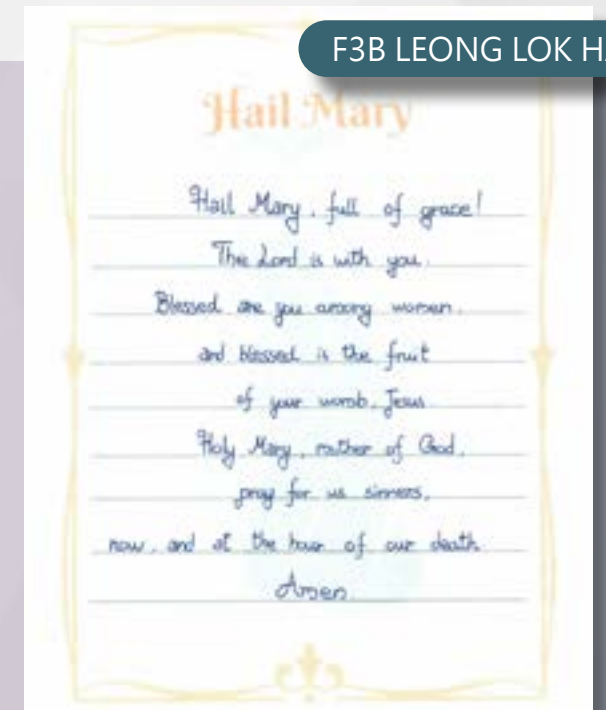 F3B LEONG LOK
Hail Mary
Hail Mary, full of grace!
The Lord is with you.
Blessed are you among women,
and blessed is the fruit
of your womb, Jesus
Holy Mary, mother of God,
pray for us sinners,
now, and at the hour of our death.
Amen.